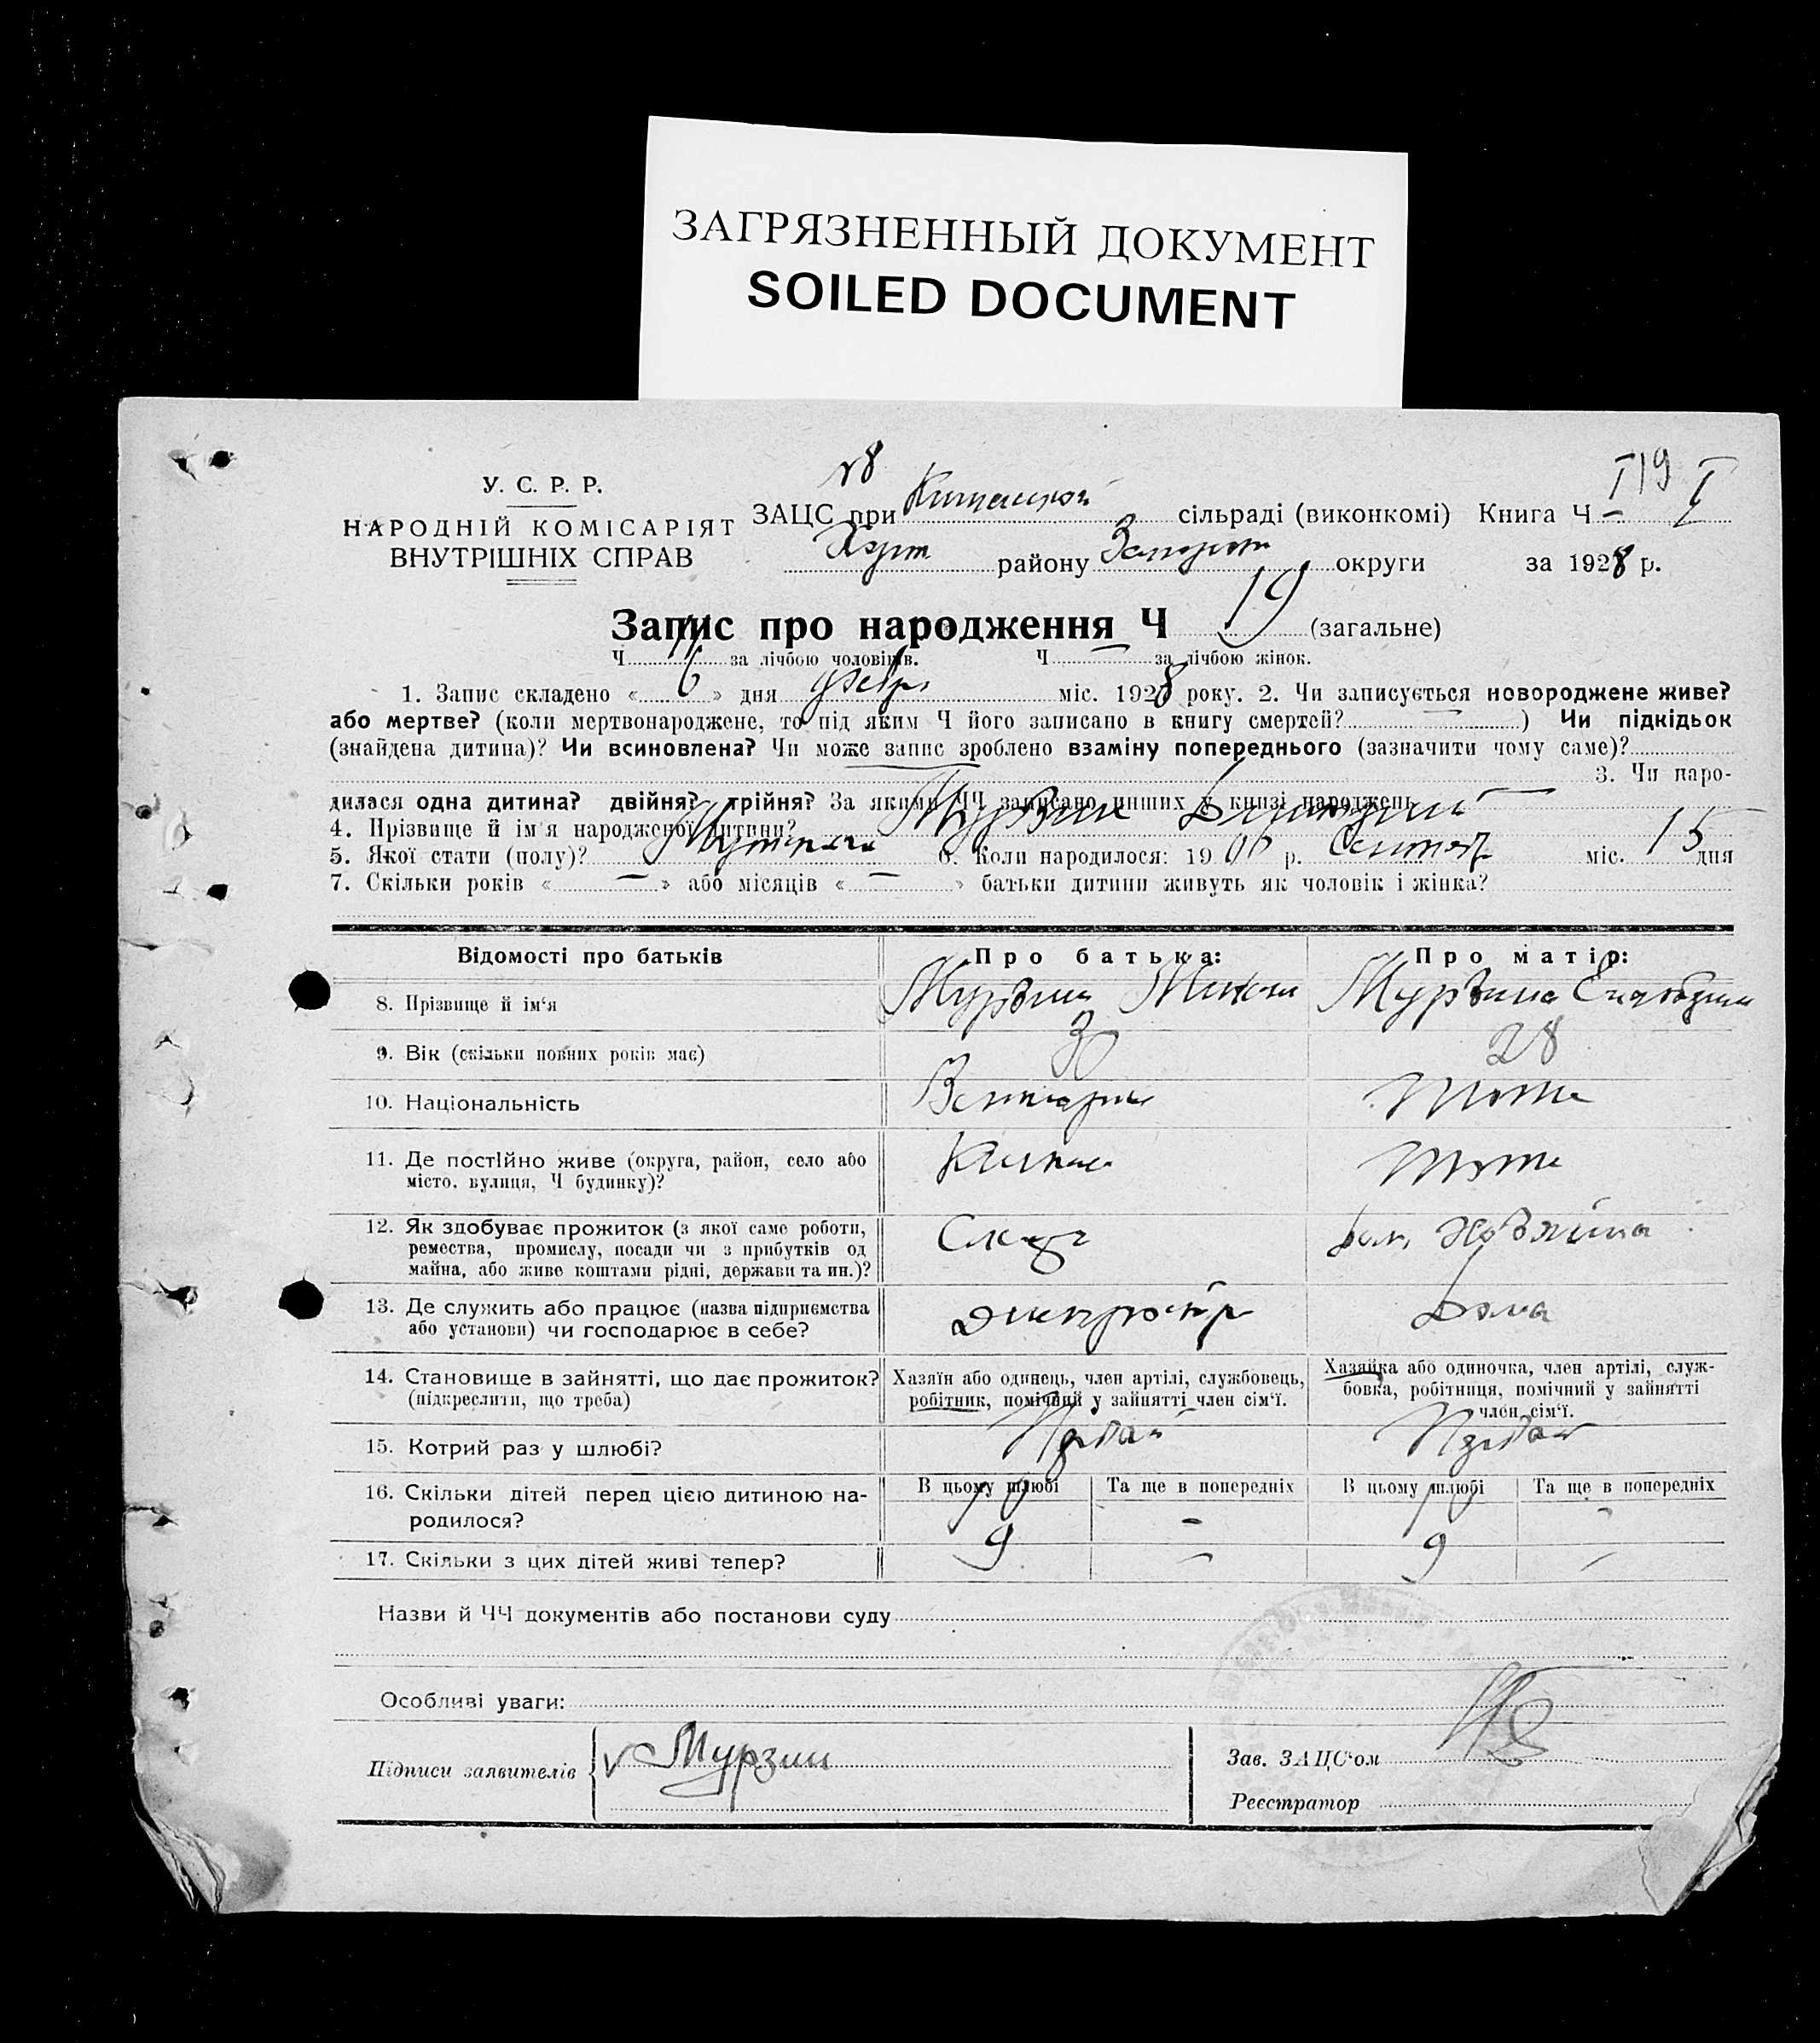 ЗАГРЯЗНЕННЫЙ ДОКУМЕНТ
SOILED DOCUMENT
У. С. Р. Р.
НАРОДНІЙ КОМІСАРІЯТ
ВНУТРІШНІХ СПРАВ
ЗАЦС при сільраді (виконкомі) Книга Ч I
району округи за 1928 р.
Запис про народження Ч 19 (загальне)
Ч за лічбою чоловіків. Ч — за лічбою жінок.
1. Запис складено « 6 » дня міс. 1928 року. 2. Чи записується новороджене живе?
або мертве? (коли мертвонароджене, то під яким Ч його записано в книгу смертей? — ) Чи підкідьок
(знайдена дитина)? Чи всиновлена? Чи може запис зроблено взаміну попереднього (зазначити чому саме)?
3. Чи наро-
дилася одна дитина? двійня? трійня? За якими ЧЧ записано инших у книзі народжень
4. Прізвище й ім'я народженої дитини? Мурзин
5. Якої стати (полу)? 6. Коли народилося: 19 06 р. міс. 15 дня
7. Скільки років « — » або місяців « — » батьки дитини живуть як чоловік і жінка?
Відомості про батьків Про батька: Про матір:
8. Прізвище й ім‘я Мурзин Мурзина
9. Вік (скільки повних років має) 28
10. Національність тоже
11. Де постійно живе (округа, район, село або тоже
місто, вулиця, Ч будинку)?
12. Як здобуває прожиток (з якої саме роботи,
ремества, промислу, посади чи з прибутків од
майна, або живе коштами рідні, держави та ин.)?
13. Де служить або працює (назва підприємства Дома
або установи) чи господарює в себе?
14. Становище в зайнятті, що дає прожиток? Хазяїн або одинець, член артілі, службовець, Хазяйка або одиночка, член артілі, служ-
(підкреслити, що треба) робітник, помічний у зайнятті член сім‘ї. бовка, робітниця, помічний у зайнятті
член сім‘ї.
15. Котрий раз у шлюбі? Первый Первый
16. Скільки дітей перед цією дитиною на- В цьому шлюбі Та ще в попередніх В цьому шлюбі Та ще в попередніх
родилося? 10 - 10 -
17. Скільки з цих дітей живі тепер? 9 — 9 —
Назви й ЧЧ документів або постанови суду
Особливі уваги:
Підписи заявителів Мурзин Зав. ЗАЦС‘ом
Реєстратор